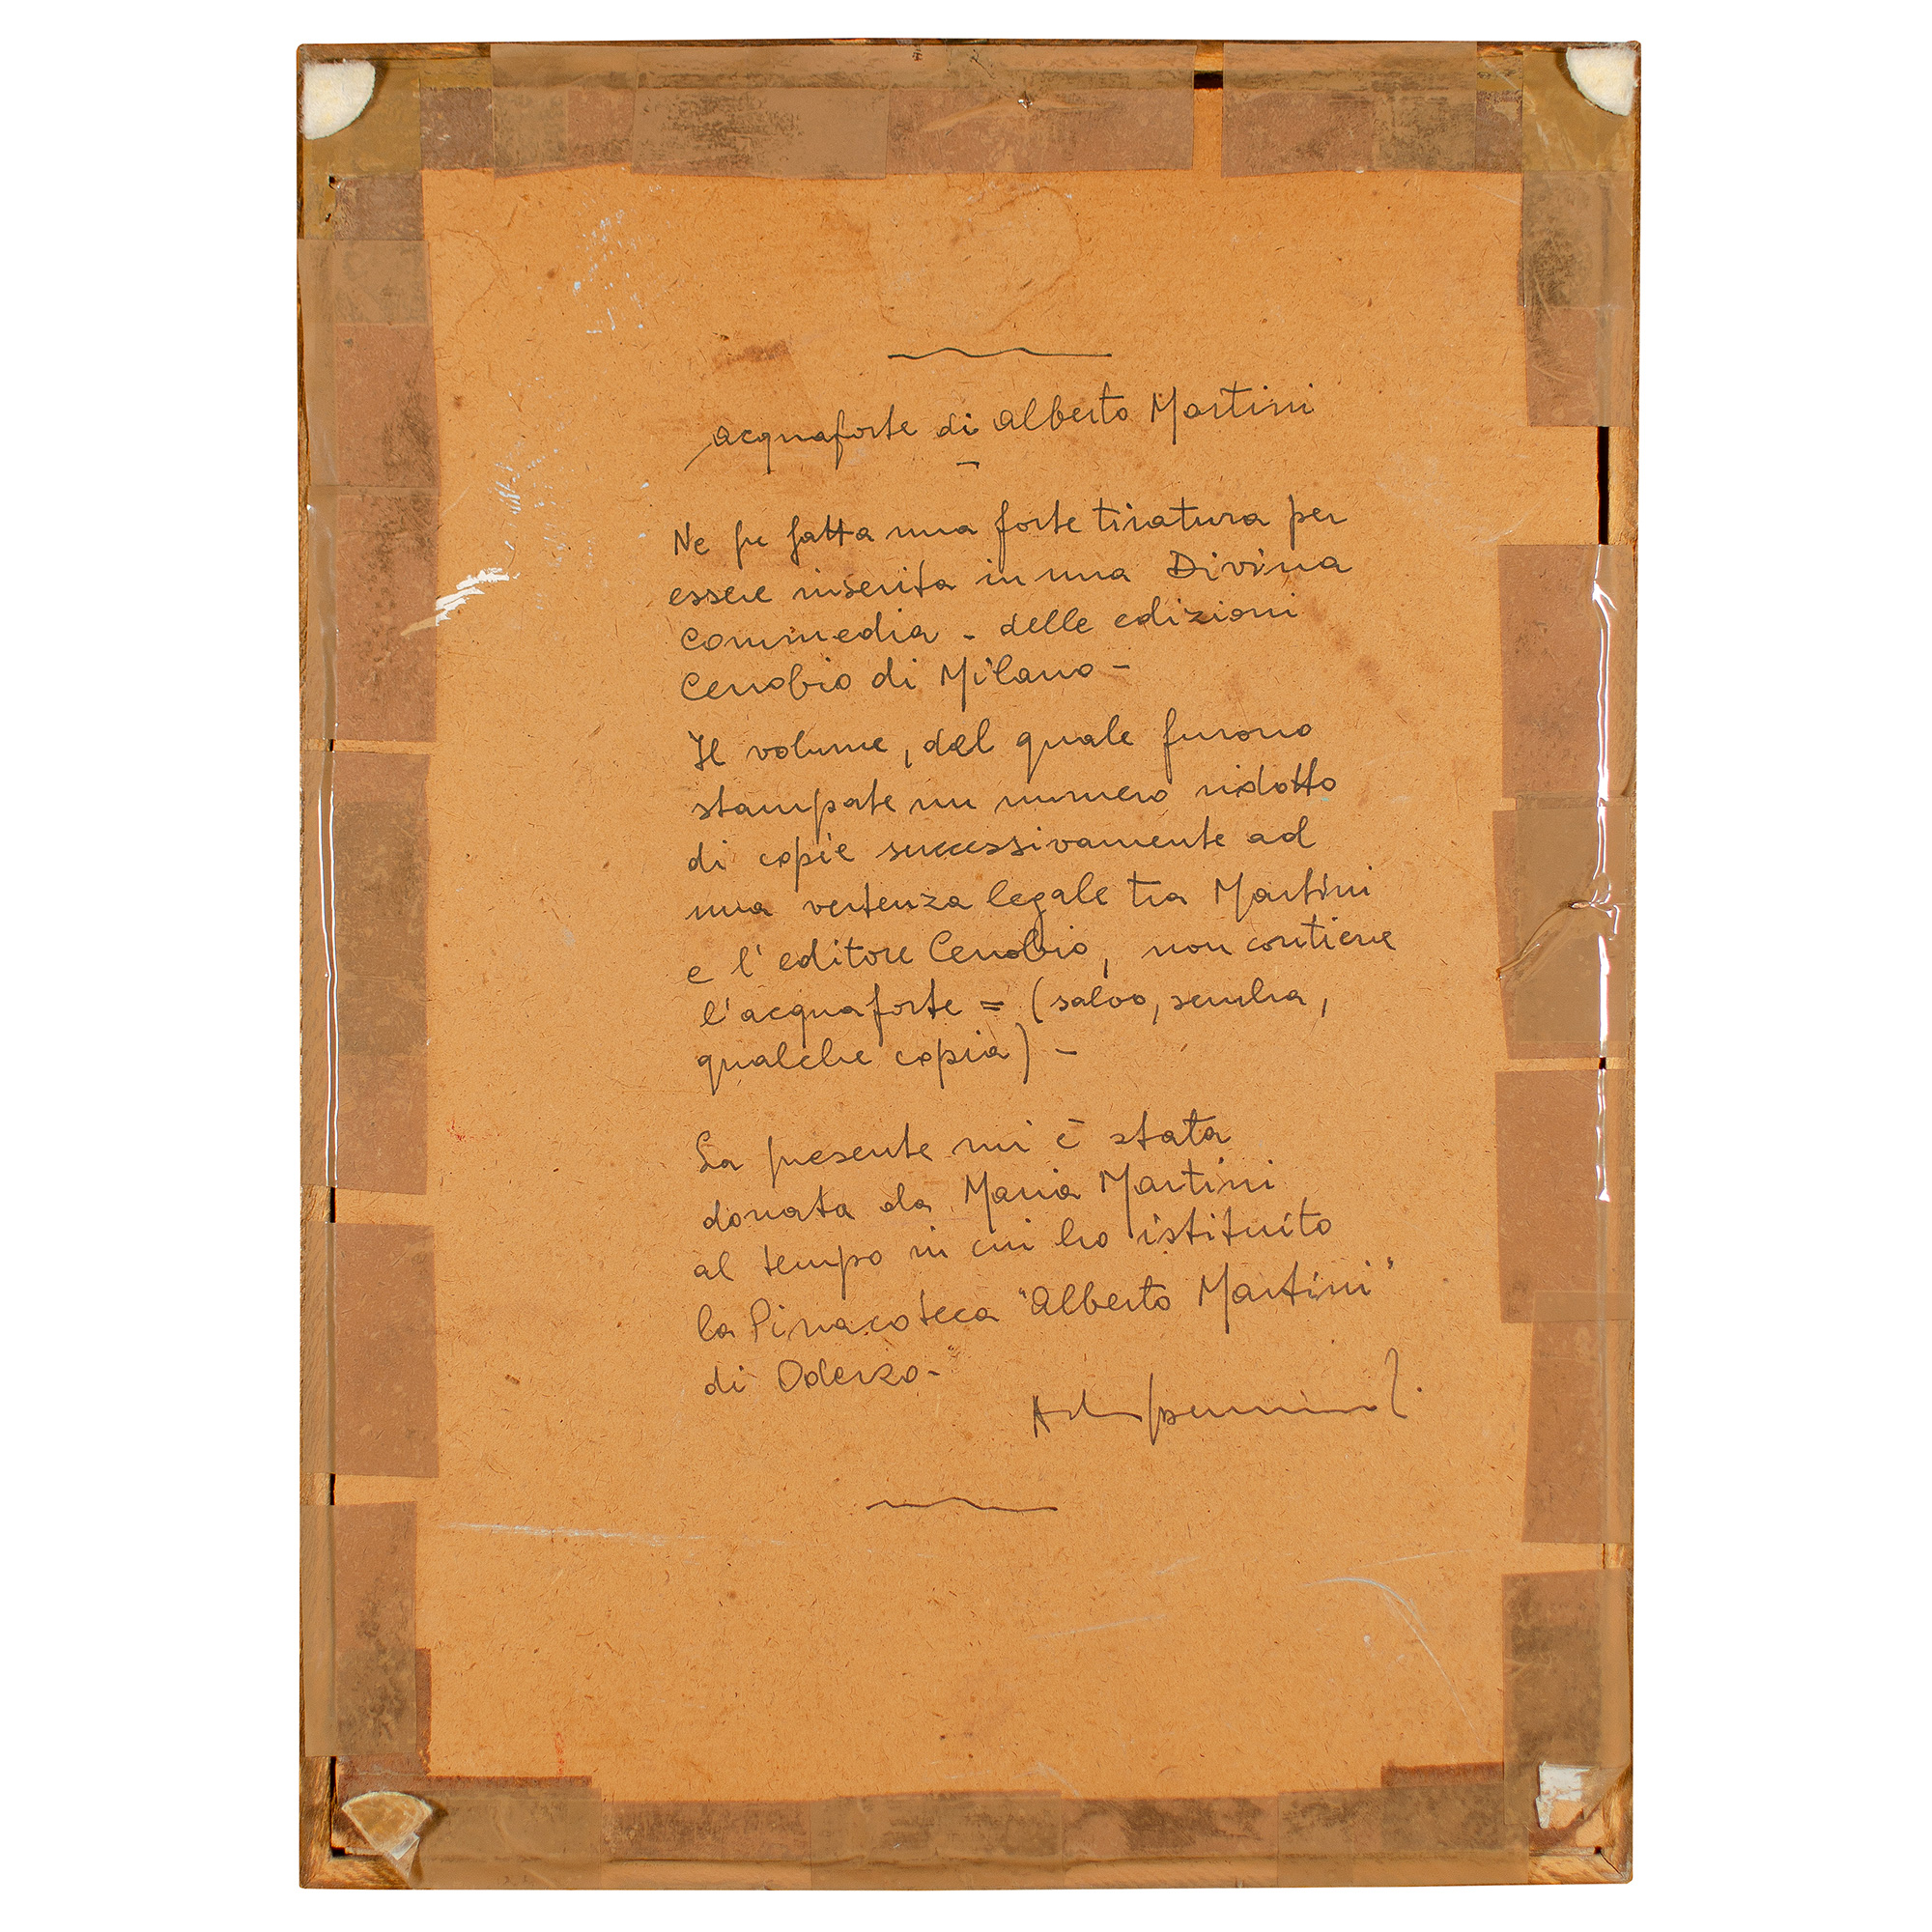 acquaforte di Alberto Martini
Ne fu fatta una forte tiratura per
essere inserita in una Divina
Commedia - delle edizioni
Cenobio di Milano -
Il volume, del quale furono
stampate un numero ridotto
di copie successivamente ad
una vertenza legale tra Martini
e l'editore Cenobio, non contiene
l'acquaforte = (salvo, sembra,
qualche copia) -
La presente mi è stata
donata da Maria Martini
al tempo in cui ho istituito
la Pinacoteca "Alberto Martini"
di Oderzo -